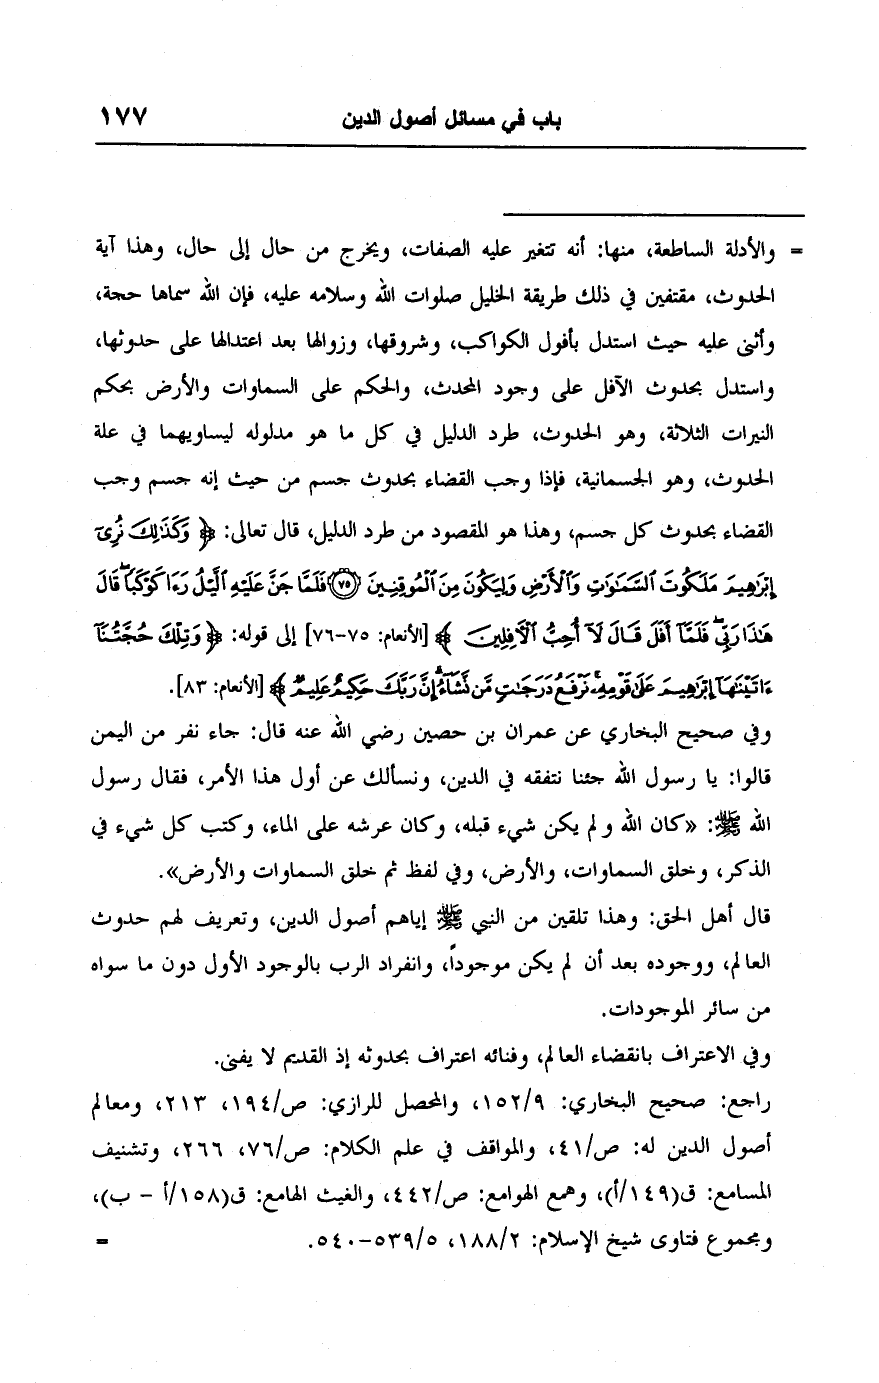 باب في مسائل أصول الدين ١٧٧
= والأدلة الساطعة، منها: أنه تتغير عليه الصفات، ويخرج من حال إلى حال، وهذا آية
الحدوث، مقتفين في ذلك طريقة الخليل صلوات الله وسلامه عليه، فإن الله سماها حجة،
وأثنى عليه حيث استدل بأفول الكواكب، وشروقها، وزوالها بعد اعتدالها على حدوثها،
واستدل بحدوث الآفل على وجود المحدث، والحكم على السماوات والأرض بحكم
النيرات الثلاثة، وهو الحدوث، طرد الدليل في كل ما هو مدلوله ليساويهما في علة
الحدوث، وهو الجسمانية، فإذا وجب القضاء بحدوث جسم من حيث إنه جسم وجب
القضاء بحدوث كل جسم، وهذا هو المقصود من طرد الدليل، قال تعالى: ﴿ وَكَذَٰلِكَ نُرِىٓ
إِبْرَٰهِيمَ مَلَكُوتَ ٱلسَّمَٰوَٰتِ وَٱلْأَرْضِ وَلِيَكُونَ مِنَ ٱلْمُوقِنِينَ ﴿٧٥﴾ فَلَمَّا جَنَّ عَلَيْهِ ٱلَّيْلُ رَءَا كَوْكَبًا ۖ قَالَ
هَٰذَا رَبِّى ۖ فَلَمَّآ أَفَلَ قَالَ لَآ أُحِبُّ ٱلْءَافِلِينَ ﴾ [الأنعام: ٧٥-٧٦] إلى قوله: ﴿ وَتِلْكَ حُجَّتُنَآ
ءَاتَيْنَٰهَآ إِبْرَٰهِيمَ عَلَىٰ قَوْمِهِۦ ۚ نَرْفَعُ دَرَجَٰتٍ مَّن نَّشَآءُ ۗ إِنَّ رَبَّكَ حَكِيمٌ عَلِيمٌ ﴾ [الأنعام: ٨٣].
وفي صحيح البخاري عن عمران بن حصين رضي الله عنه قال: جاء نفر من اليمن
قالوا: يا رسول الله جئنا نتفقه في الدين، ونسألك عن أول هذا الأمر، فقال رسول
الله ﷺ: «كان الله ولم يكن شيء قبله، وكان عرشه على الماء، وكتب كل شيء في
الذكر، وخلق السماوات، والأرض، وفي لفظ ثم خلق السماوات والأرض».
قال أهل الحق: وهذا تلقين من النبي ﷺ إياهم أصول الدين، وتعريف لهم حدوث
العالم، ووجوده بعد أن لم يكن موجوداً، وانفراد الرب بالوجود الأول دون ما سواه
من سائر الموجودات.
وفي الاعتراف بانقضاء العالم، وفنائه اعتراف بحدوثه إذ القديم لا يفنى.
راجع: صحيح البخاري: ١٥٢/٩، والمحصل للرازي: ص/١٩٤، ٢١٣، ومعالم
أصول الدين له: ص/٤١، والمواقف في علم الكلام: ص/٧٦، ٢٦٦، وتشنيف
المسامع: ق(١٤٩/أ)، وهمع الهوامع: ص/٤٤٢، والغيث الهامع: ق(١٥٨/أ - ب)،
ومجموع فتاوى شيخ الإسلام: ١٨٨/٢، ٥٣٩/٥-٥٤٠. =